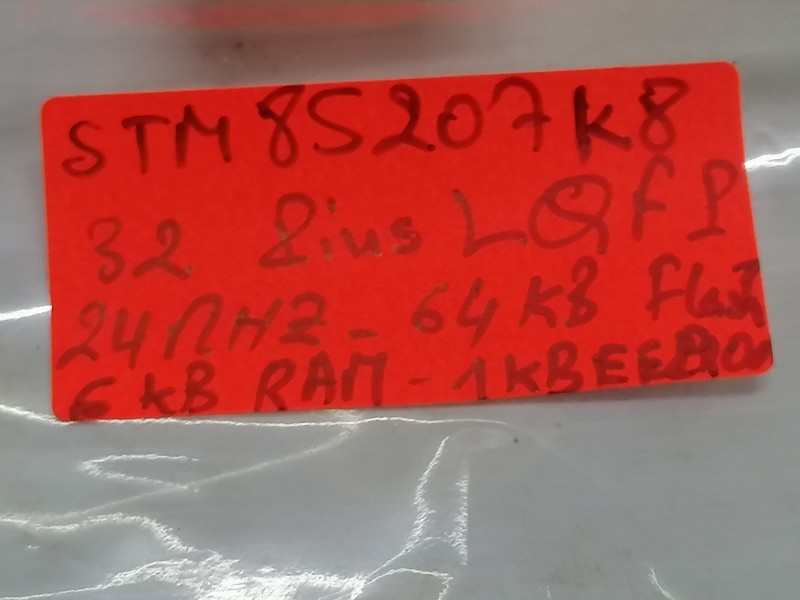 STM8S207K8
32 Pins LQFP
24MHZ - 64KB Flash
6 KB RAM - 1KB EEPROM